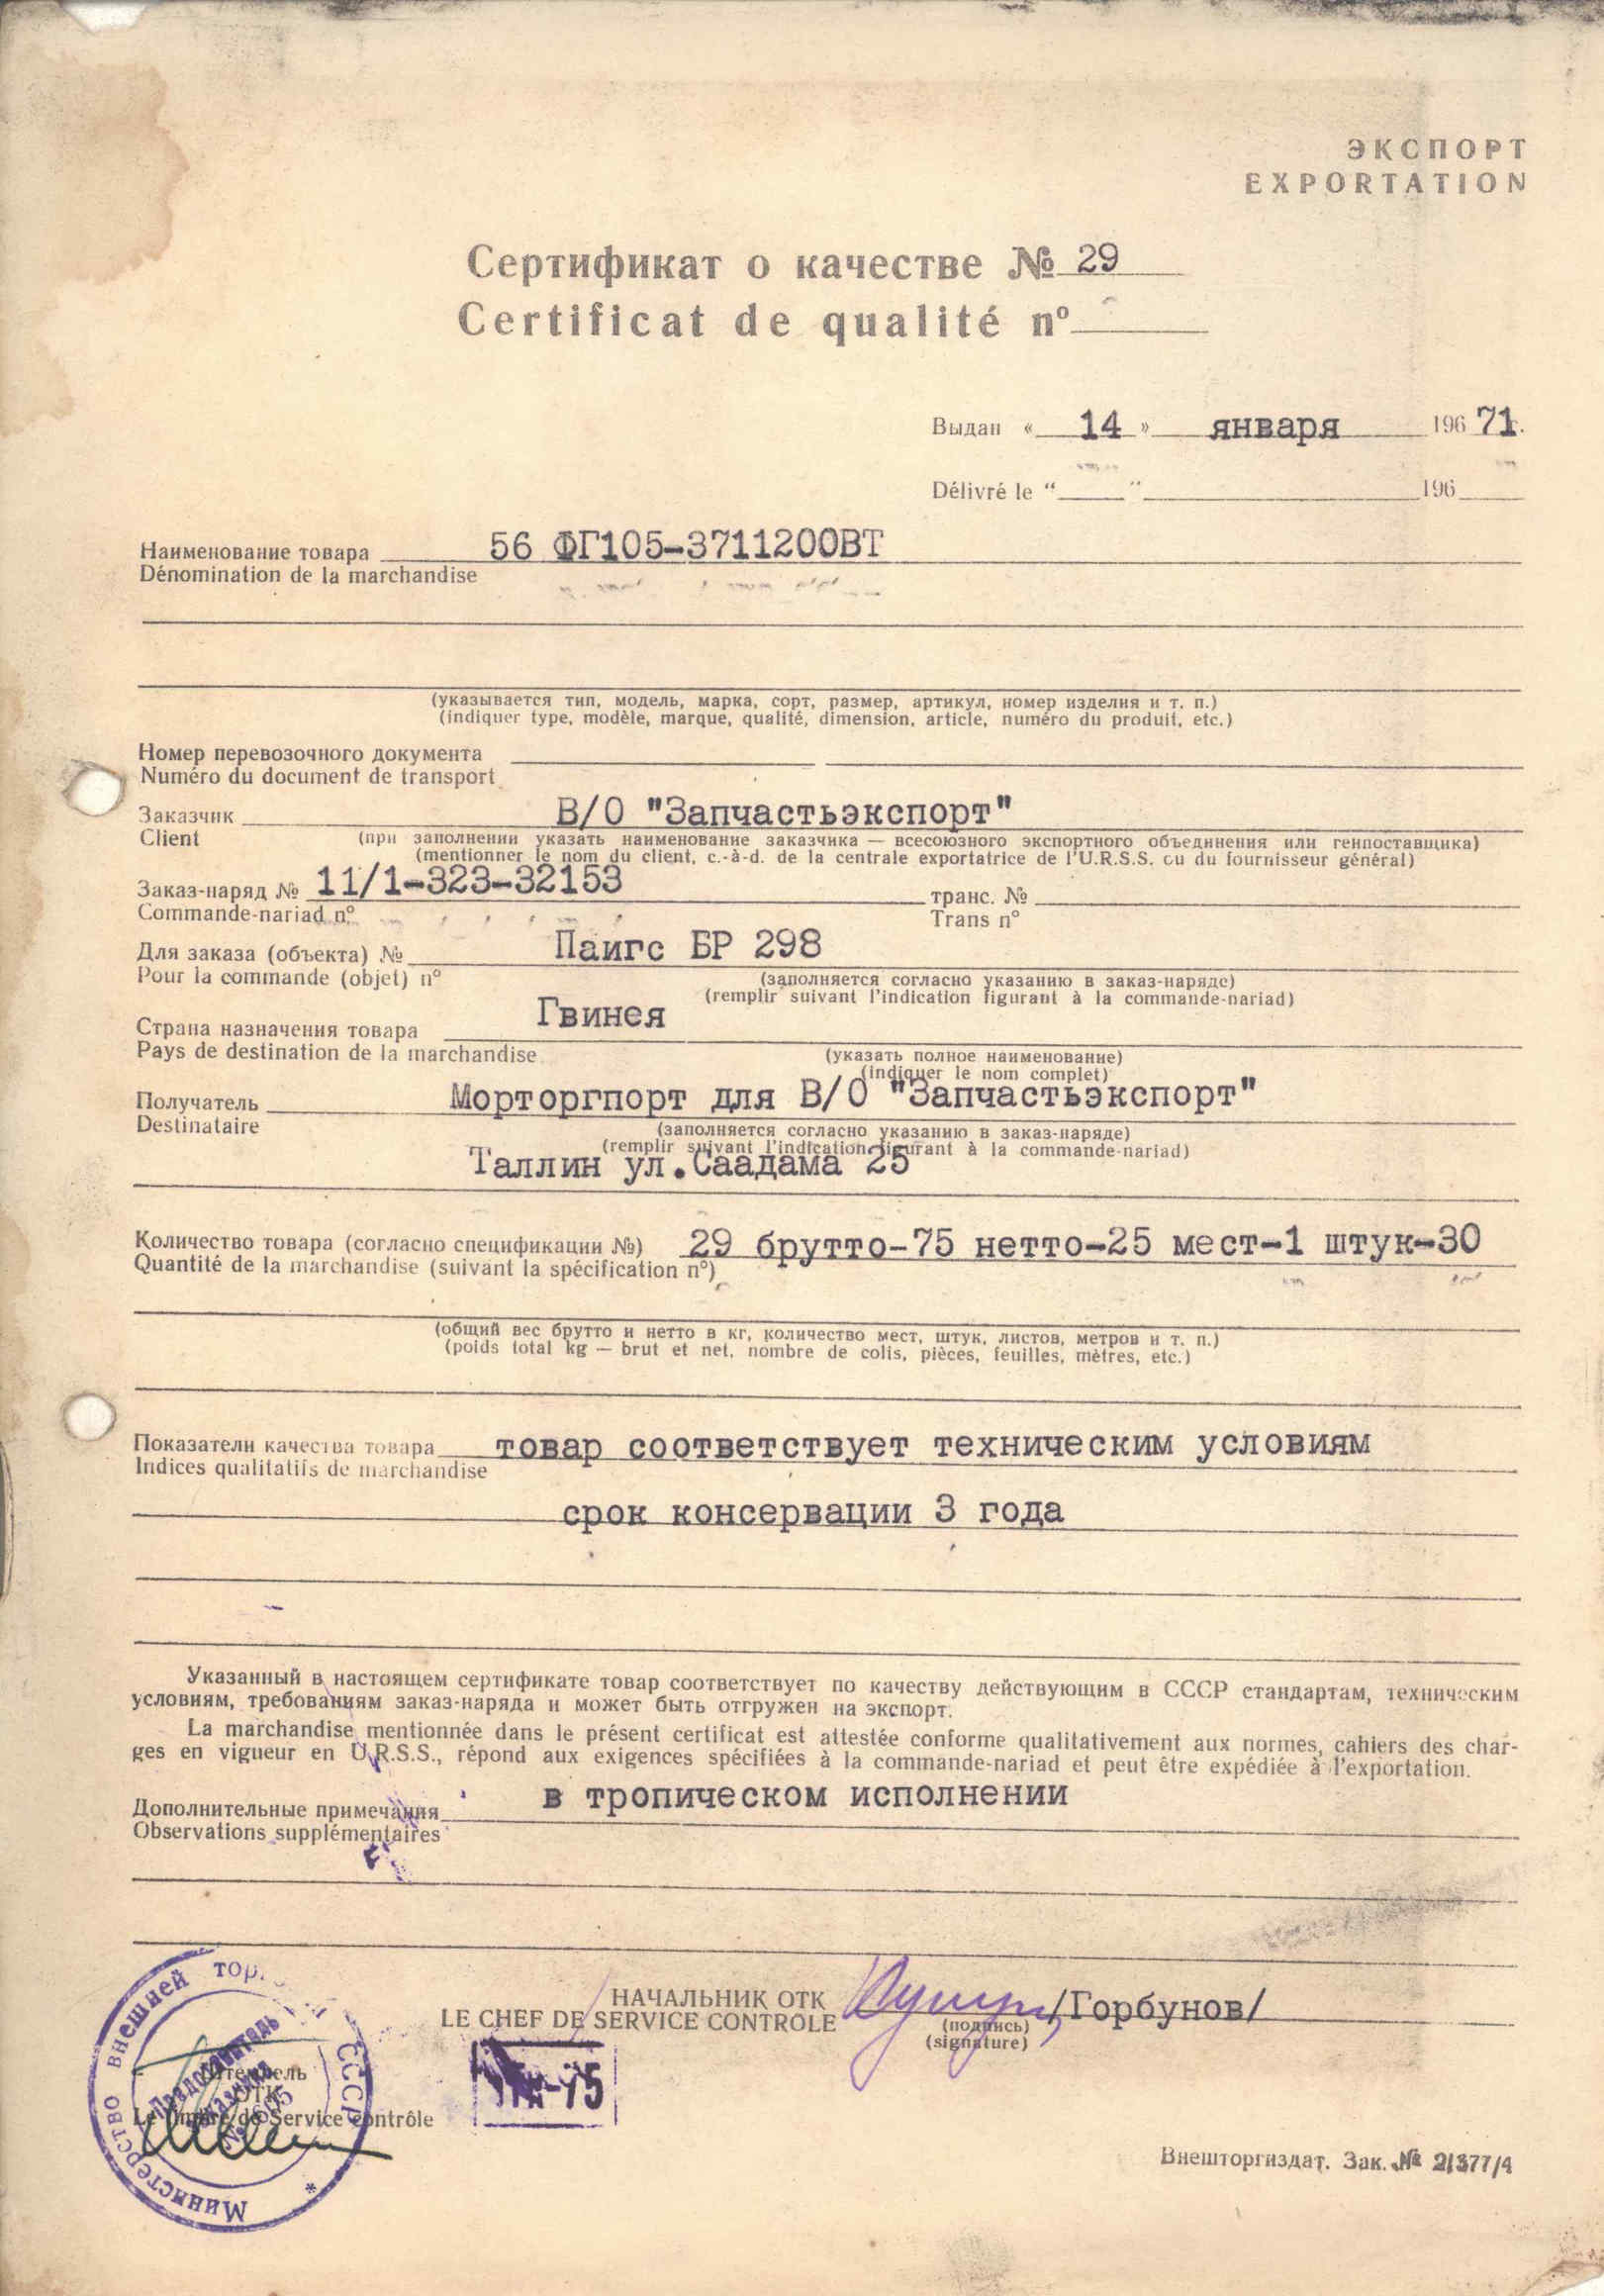 ЭКСПОРТ
EXPORTATION
Сертификат о качестве № 29
Certificat de qualité n°
Выдан « 14 » января 196 71.
Délivré le “ ” 196
Наименование товара 56 ФГ105-3711200ВТ
Dénomination de la marchandise
(указывается тип, модель, марка, сорт, размер, артикул, номер изделия и т. п.)
(indiquer type, modèle, marque, qualité, dimension, article, numéro du produit, etc.)
Номер перевозочного документа
Numéro du document de transport
Заказчик В/О "Запчастьэкспорт"
Client (при заполнении указать наименование заказчика — всесоюзного экспортного объединения или генпоставщика)
(mentionner le nom du client, c.-à-d. de la centrale exportatrice de l'U.R.S.S. ou du fournisseur général)
Заказ-наряд № 11/1-323-32153 транс. №
Commande-nariad n° Trans n°
Для заказа (объекта) № Паигс БР 298
Pour la commande (objet) n° (заполняется согласно указанию в заказ-наряде)
(remplir suivant l'indication figurant à la commande-nariad)
Страна назначения товара Гвинея
Pays de destination de la marchandise (указать полное наименование)
(indiquer le nom complet)
Получатель Морторгпорт для В/О "Запчастьэкспорт"
Destinataire (заполняется согласно указанию в заказ-наряде)
(remplir suivant l'indication figurant à la commande-nariad)
Таллин ул.Саадама 25
Количество товара (согласно спецификации №) 29 брутто-75 нетто-25 мест-1 штук-30
Quantité de la marchandise (suivant la spécification n°)
(общий вес брутто и нетто в кг, количество мест, штук, листов, метров и т. п.)
(poids total kg — brut et net, nombre de colis, pièces, feuilles, mètres, etc.)
Показатели качества товара товар соответствует техническим условиям
Indices qualitatifs de marchandise
срок консервации 3 года
Указанный в настоящем сертификате товар соответствует по качеству действующим в СССР стандартам, техническим
условиям, требованиям заказ-наряда и может быть отгружен на экспорт.
La marchandise mentionnée dans le présent certificat est attestée conforme qualitativement aux normes, cahiers des char-
ges en vigueur en U.R.S.S., répond aux exigences spécifiées à la commande-nariad et peut être expédiée à l'exportation.
Дополнительные примечания в тропическом исполнении
Observations supplémentaires
НАЧАЛЬНИК ОТК /Горбунов/
LE CHEF DE SERVICE CONTROLE (подпись)
(signature)
Министерство внешней СССР
Штемпель
ОТК
Le timbre de Service contrôle
Внешторгиздат. Зак. № 21377/4